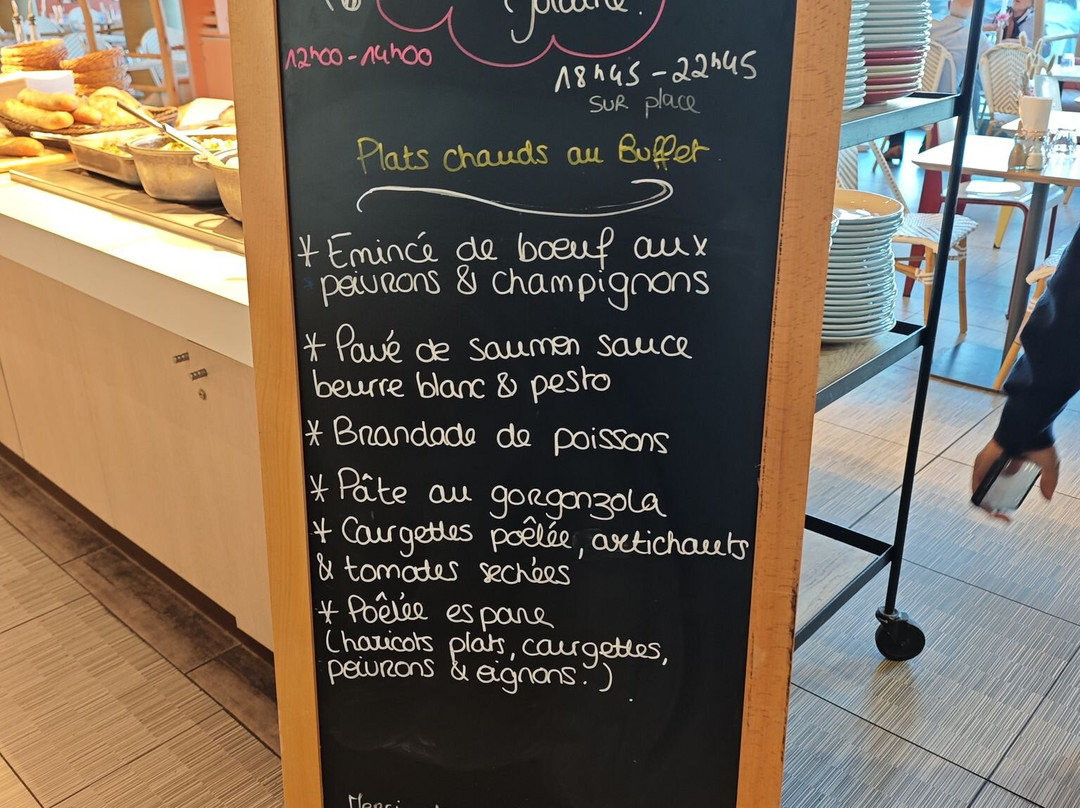 12h00 - 14h00
18h45 - 22h45
SUR place
Plats chauds au Buffet
* Emincé de bœuf aux
poivrons & champignons
* Pavé de saumon sauce
beurre blanc & pesto
* Brandade de poissons
* Pâte au gorgonzola
* Courgettes poêlée, artichauts
& tomates sechées
* Poêlée espane
(haricots plats, courgettes,
poivrons & oignons.)